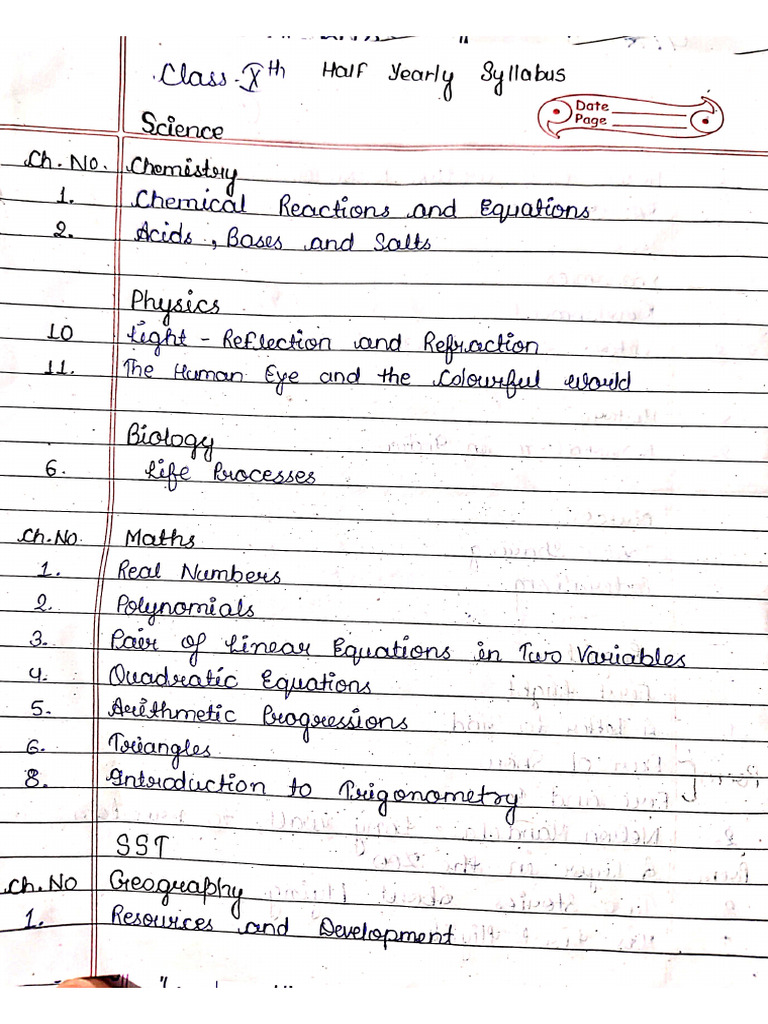 Class-Xth Half Yearly Syllabus
Date
Page
Science
Ch. No. Chemistry
1. Chemical Reactions and Equations
2. Acids, Bases and Salts
Physics
10 Light - Reflection and Refraction
11. The Human Eye and the Colourful World
Biology
6. Life Processes
Ch. No. Maths
1. Real Numbers
2. Polynomials
3. Pair of Linear Equations in Two Variables
4. Quadratic Equations
5. Arithmetic Progressions
6. Triangles
8. Introduction to Trigonometry
SST
Ch. No Geography
1. Resources and Development